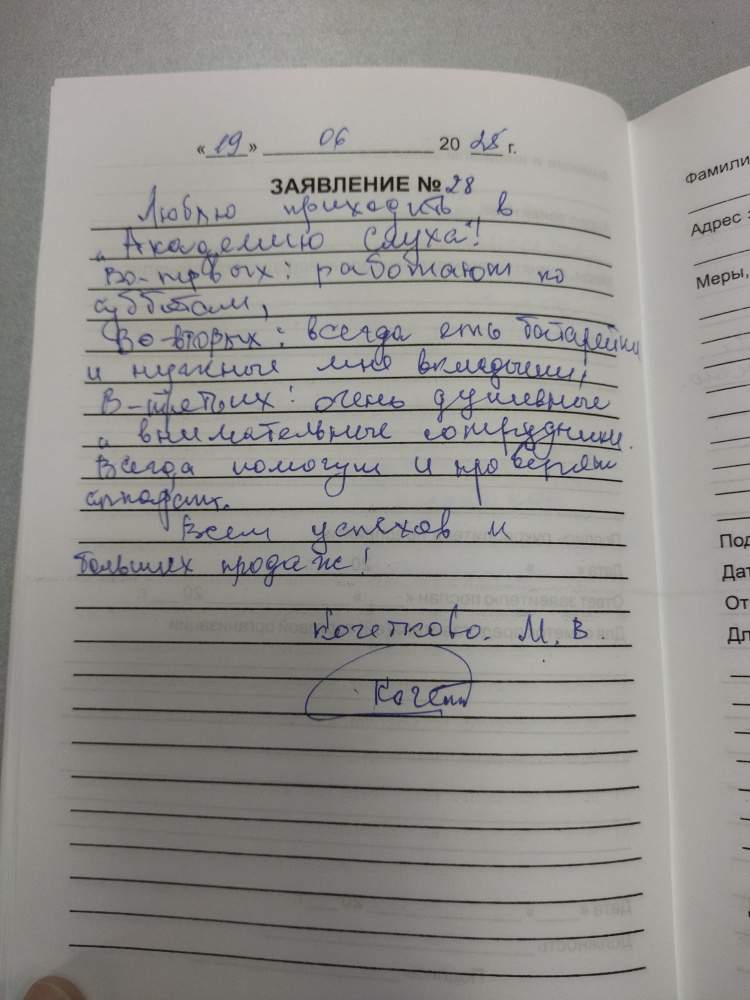 «19» 06 2025 г.
ЗАЯВЛЕНИЕ № 28
Люблю приходить в
"Академию слуха"!
Во-первых: работают по
субботам,
Во-вторых: всегда есть батарейки
и нужные мне вкладыши,
В-третьих: очень душевные
и внимательные сотрудники.
Всегда помогут и проверят
аппарат.
Всем успехов и
больших продаж!
Кочеткова. М. В.
Фамили
Адрес
Меры,
Под
Дат
От
Дл